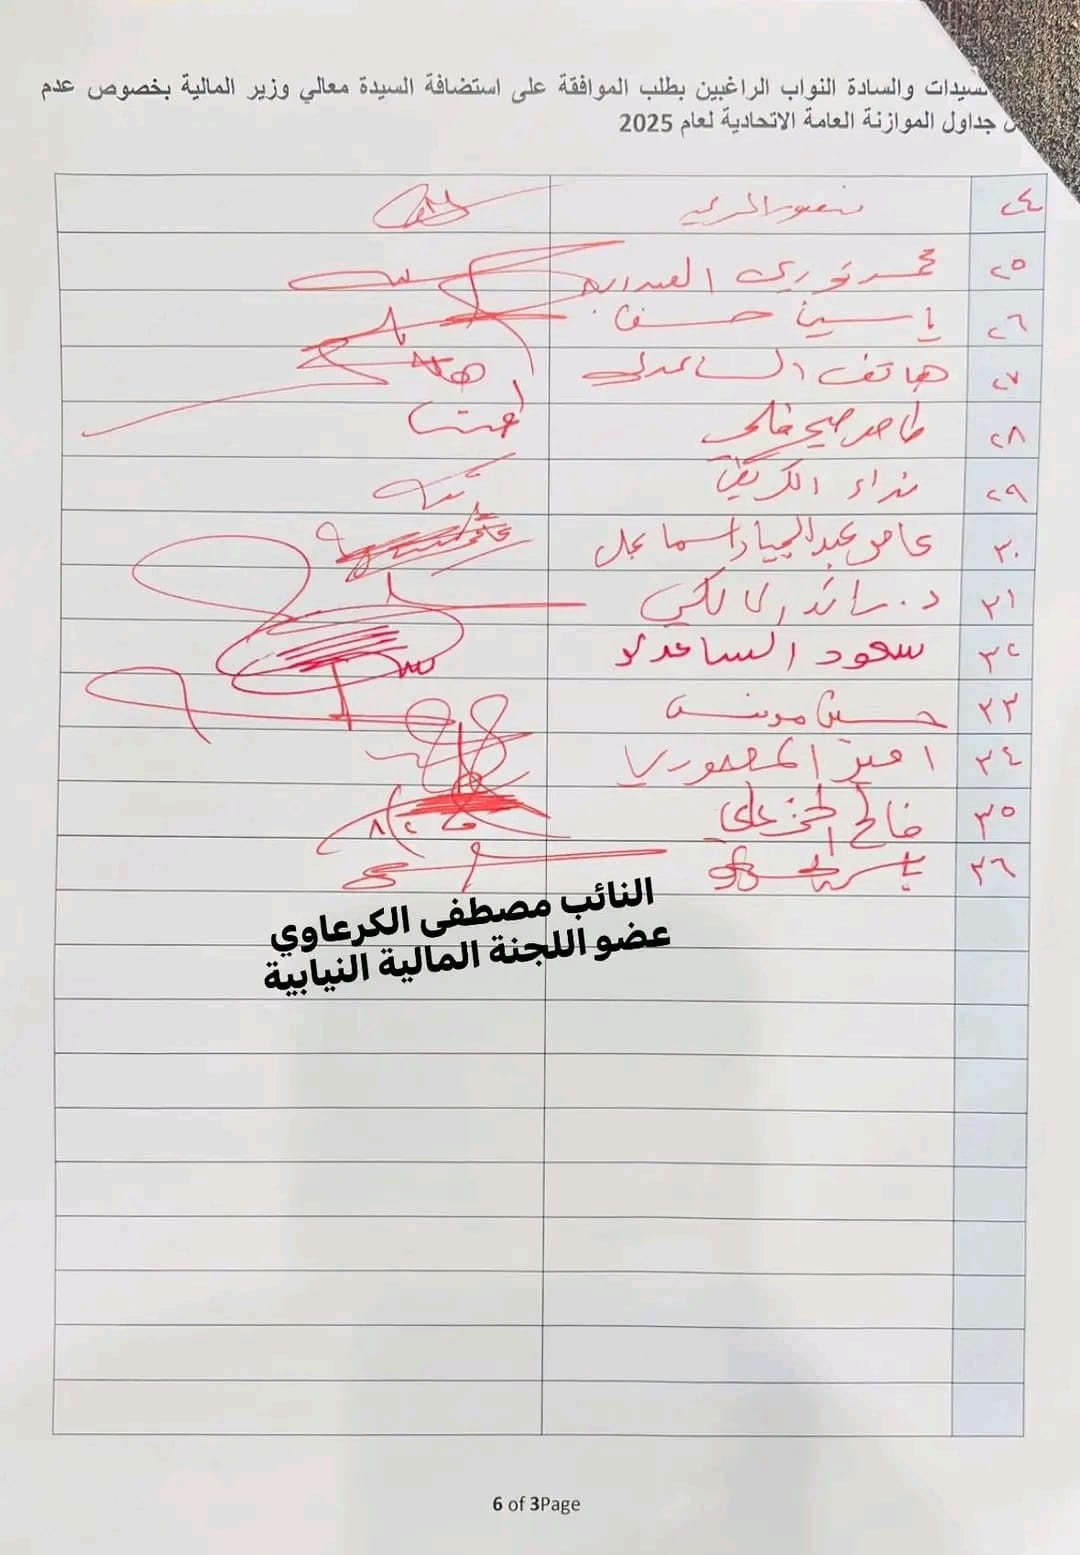 السيدات والسادة النواب الراغبين بطلب الموافقة على استضافة السيدة معالي وزير المالية بخصوص عدم
جداول الموازنة العامة الاتحادية لعام 2025
٢٤
٢٥ محمد نوري
٢٦ ياسين
٢٧ هاتف الساعدي
٢٨
٢٩ نداء الكريطي
٣٠ عامر عبدالجبار اسماعيل
٣١ د. رائد المالكي
٣٢ سعود الساعدي
٣٣ حسين مونس
٣٤ امير المعموري
٣٥ فالح الخزعلي
٣٦ ياسر
النائب مصطفى الكرعاوي
عضو اللجنة المالية النيابية
6 of 3Page